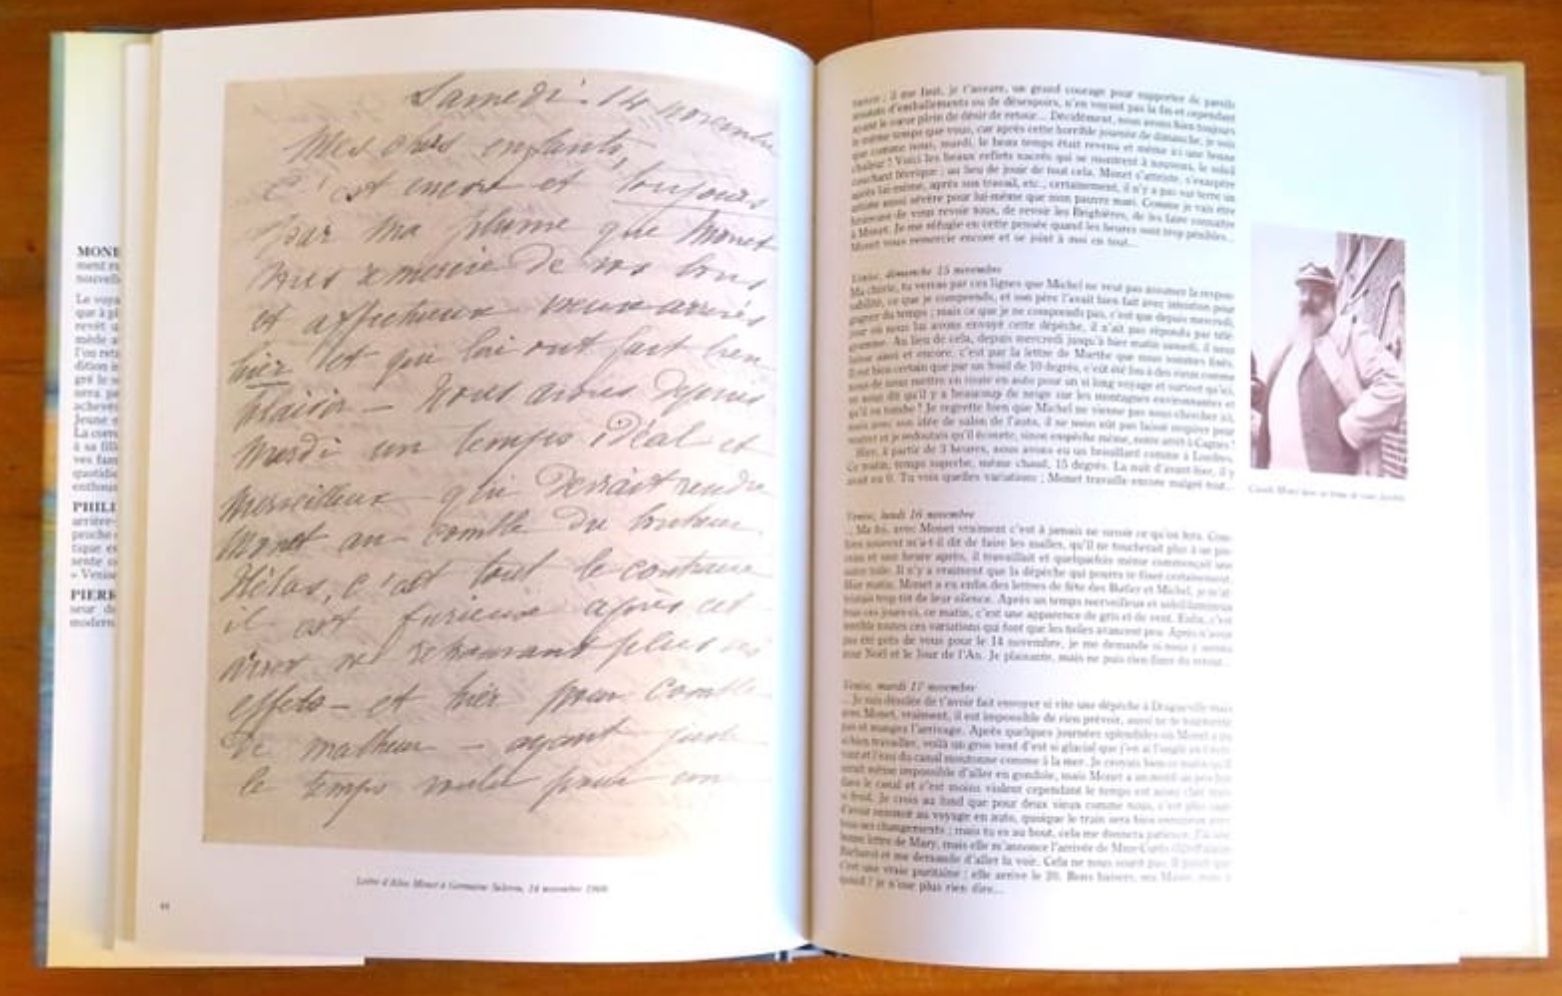 MONE
ment
nouvell
Le voya
que à pl
revêt u
mède a
l'on retr
dition i
gré le s
sera pe
achevé
Jeune
La corr
à sa fill
ves fam
quotidie
enthous
PHILI
arrière-
proche
tique es
sente
« Venise
PIERR
seur de
modern
Samedi 14 novembre
Mes chers enfants,
C'est encore et toujours
par ma plume que Monet
vous remercie de vos bons
et affectueux vœux arrivés
hier et qui lui ont fait bien
plaisir — Nous avons depuis
mardi un temps idéal et
merveilleux qui devrait rendre
Monet au comble du bonheur.
Hélas, c'est tout le contraire
il est furieux après cet
arrêt ne retrouvant plus ses
effets — et hier pour comble
de malheur — ayant juste
le temps voulu pour un
Lettre d'Alice Monet à Germaine Salerou, 14 novembre 1908
44
; il me faut, je t'assure, un grand courage pour supporter de pareils
d'emballements ou de désespoirs, n'en voyant pas la fin et cependant
ayant le cœur plein de désir de retour... Décidément, nous avons bien toujours
le même temps que vous, car après cette horrible journée de dimanche, je vois
que comme nous, mardi, le beau temps était revenu et même ici une bonne
chaleur ! Voici les beaux reflets nacrés qui se montrent à nouveau, le soleil
couchant féerique ; au lieu de jouir de tout cela, Monet s'attriste, s'exaspère
après lui-même, après son travail, etc., certainement, il n'y a pas sur terre un
aussi sévère pour lui-même que mon pauvre mari. Comme je vais être
heureuse de vous revoir tous, de revoir les Brighières, de les faire connaître
à Monet. Je me réfugie en cette pensée quand les heures sont trop pénibles...
Monet vous remercie encore et se joint à moi en tout...
Venise, dimanche 15 novembre
Ma chérie, tu verras par ces lignes que Michel ne veut pas assumer la respon-
sabilité, ce que je comprends, et son père l'avait bien fait avec intention pour
gagner du temps ; mais ce que je ne comprends pas, c'est que depuis mercredi,
jour où nous lui avons envoyé cette dépêche, il n'ait pas répondu par télé-
gramme. Au lieu de cela, depuis mercredi jusqu'à hier matin samedi, il nous
laisse ainsi et encore, c'est par la lettre de Marthe que nous sommes fixés.
Il est bien certain que par un froid de 10 degrés, c'eût été fou à des vieux comme
nous de nous mettre en route en auto pour un si long voyage et surtout qu'ici,
on nous dit qu'il y a beaucoup de neige sur les montagnes environnantes et
qu'il en tombe ! Je regrette bien que Michel ne vienne pas nous chercher ici,
mais avec son idée de salon de l'auto, il ne nous eût pas laissé respirer pour
rentrer et je redoutais qu'il écourte, sinon empêche même, notre arrêt à Cagnes !
Hier, à partir de 3 heures, nous avons eu un brouillard comme à Londres.
Ce matin, temps superbe, même chaud, 15 degrés. La nuit d'avant-hier, il y
avait eu 0. Tu vois quelles variations ; Monet travaille encore malgré tout...
Venise, lundi 16 novembre
... Ma foi, avec Monet vraiment c'est à jamais ne savoir ce qu'on fera. Com-
bien souvent m'a-t-il dit de faire les malles, qu'il ne toucherait plus à un pin-
ceau et une heure après, il travaillait et quelquefois même commençait une
autre toile. Il n'y a vraiment que la dépêche qui pourra te fixer certainement.
Hier matin, Monet a eu enfin des lettres de fête des Butler et Michel, je m'at-
tristais trop tôt de leur silence. Après un temps merveilleux et soleil lumineux
tous ces jours-ci, ce matin, c'est une apparence de gris et de vent. Enfin, c'est
terrible toutes ces variations qui font que les toiles avancent peu. Après n'avoir
pas été près de vous pour le 14 novembre, je me demande si nous y serons
pour Noël et le Jour de l'An. Je plaisante, mais ne puis rien fixer du retour...
Venise, mardi 17 novembre
... Je suis désolée de t'avoir fait envoyer si vite une dépêche à Draguignan mais
avec Monet, vraiment, il est impossible de rien prévoir, aussi ne te tourmente
pas et manges l'arrivage. Après quelques journées splendides où Monet a pu
si bien travailler, voilà un gros vent d'est si glacial que j'en ai l'onglée en t'écri-
vant et l'eau du canal moutonne comme à la mer. Je croyais bien ce matin qu'il
serait même impossible d'aller en gondole, mais Monet a un motif un peu
dans le canal et c'est moins violent cependant le temps est assez clair mais
si froid. Je crois au fond que pour deux vieux comme nous, c'est plus sage
d'avoir renoncé au voyage en auto, quoique le train sera bien ennuyeux avec
tous ses changements ; mais tu es au bout, cela me donnera patience. J'ai une
bonne lettre de Mary, mais elle m'annonce l'arrivée de Mme Curtis
et me demande d'aller la voir. Cela ne nous sourit pas. Il paraît que
c'est une vraie puritaine ; elle arrive le 20. Bons baisers, ma
quand ? je n'ose plus rien dire...
Claude Monet